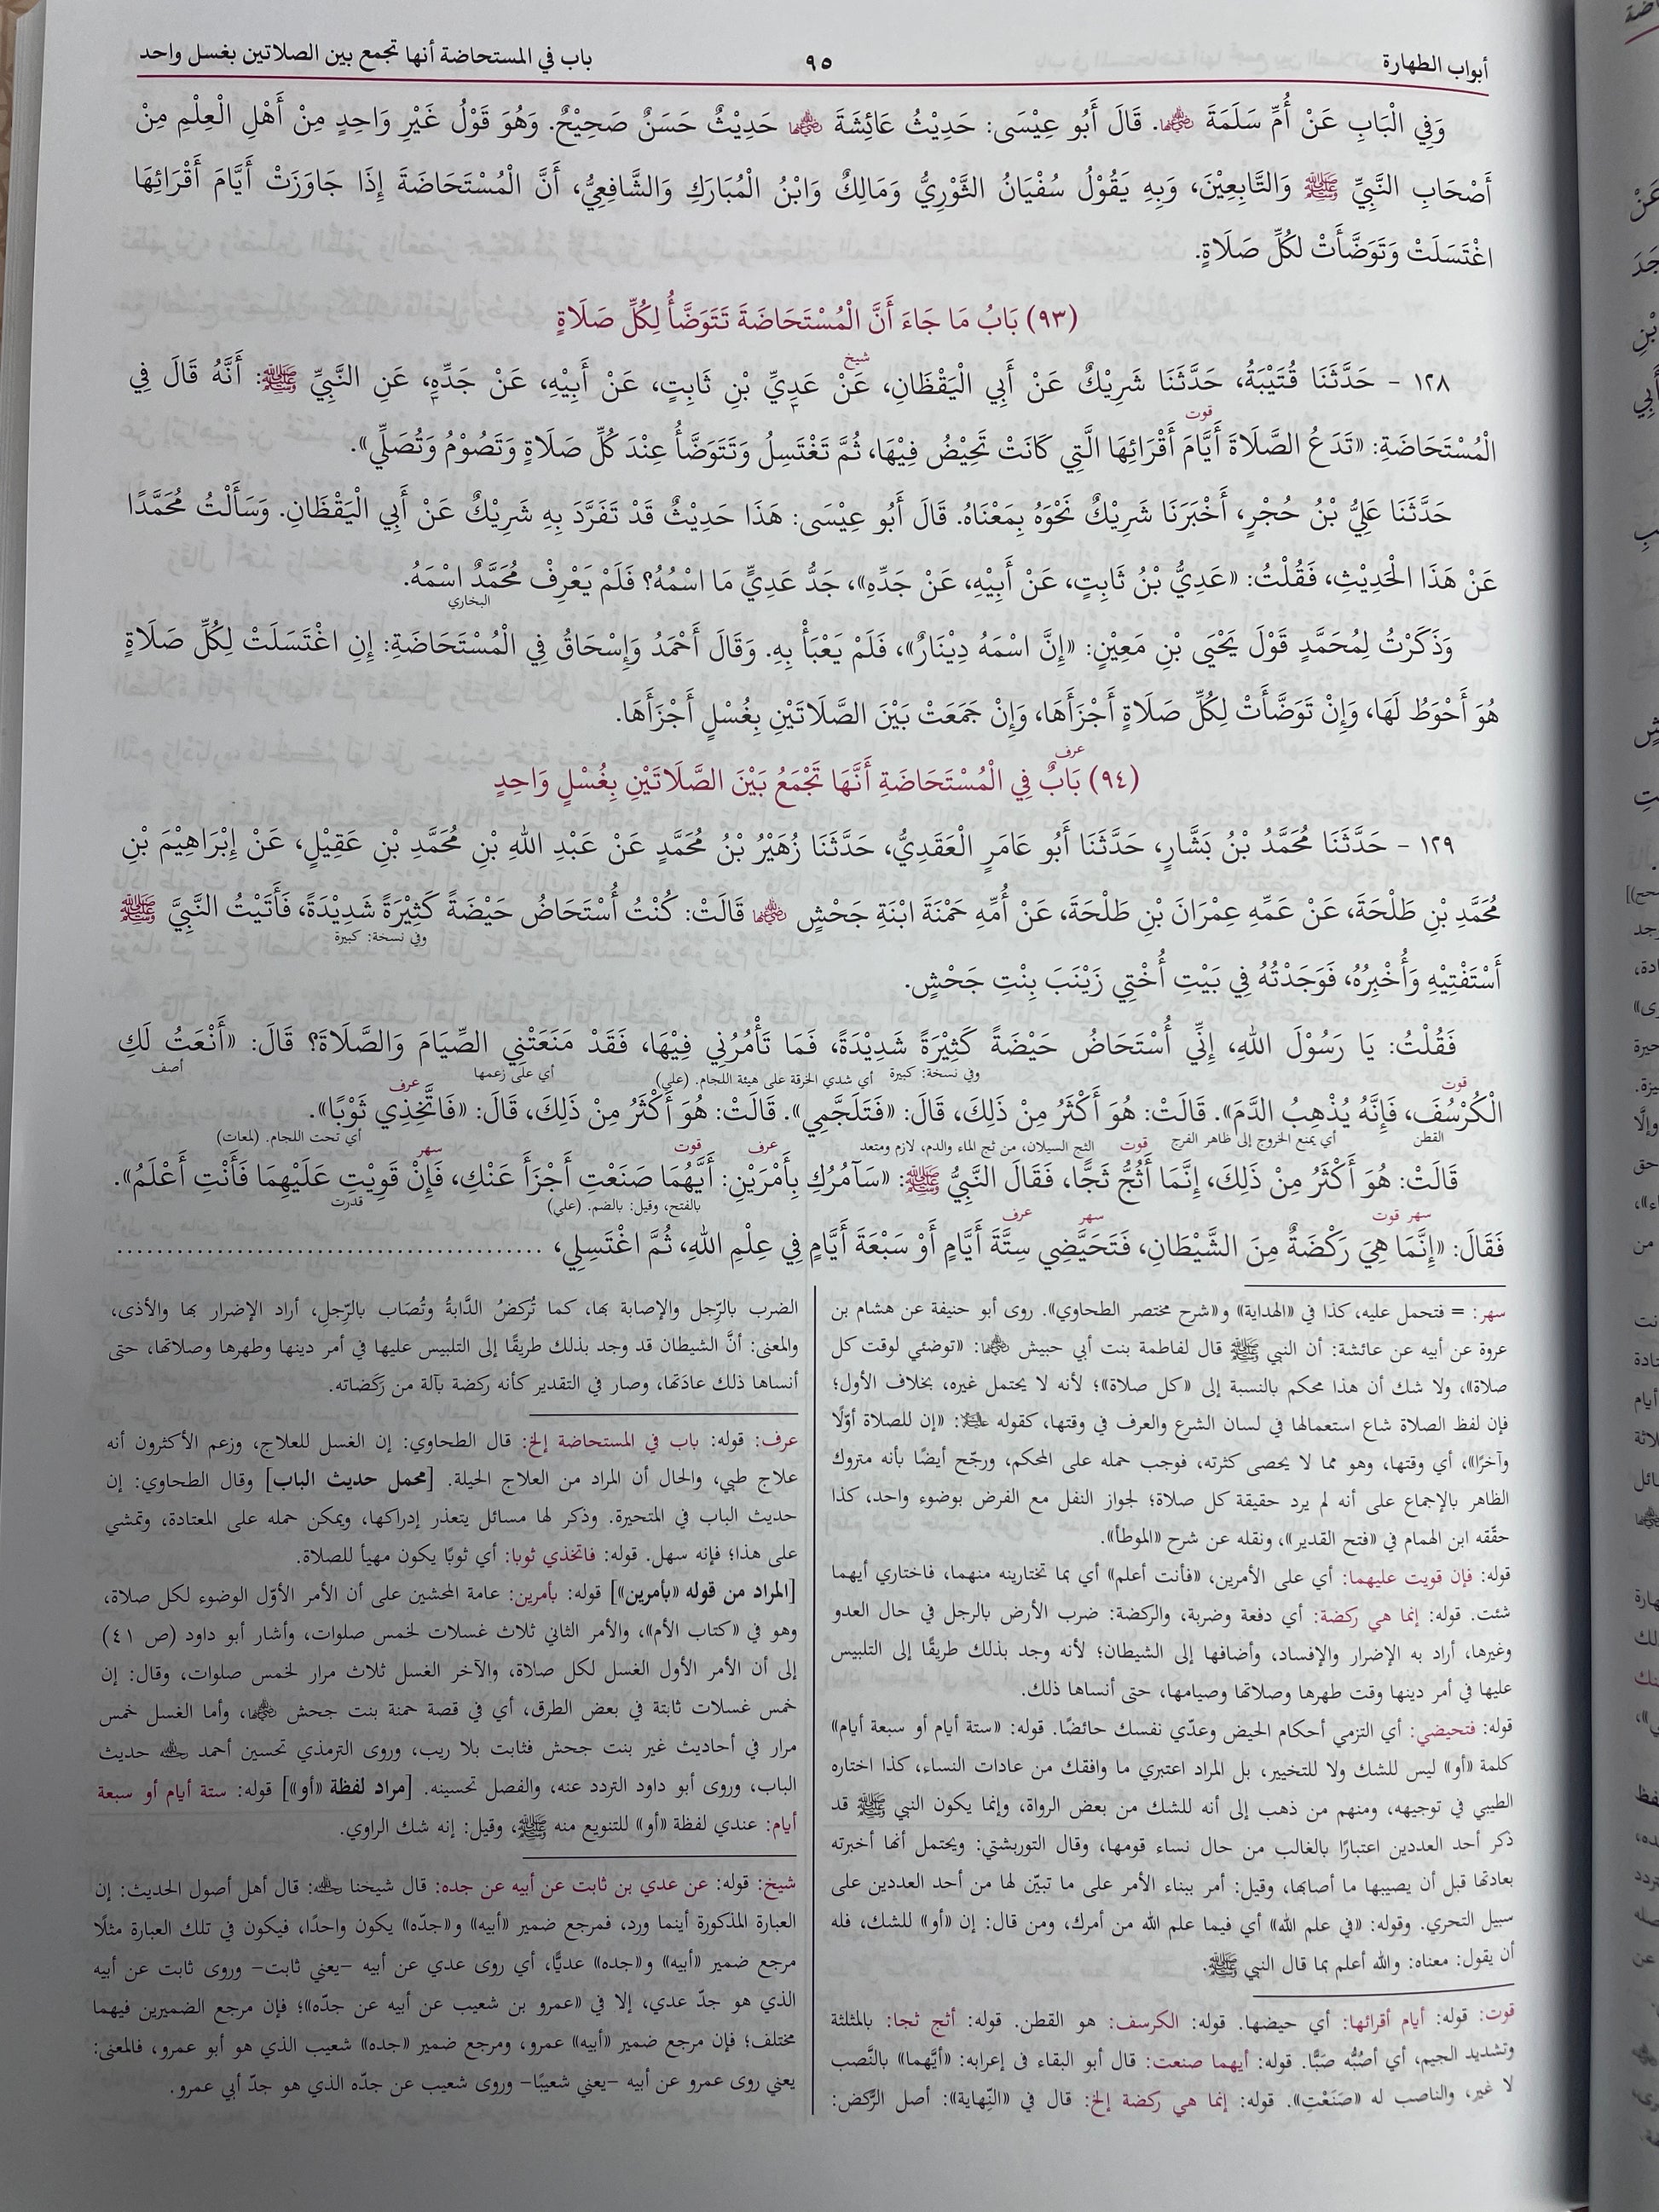 أبواب الطهارة ٩٥ باب في المستحاضة أنها تجمع بين الصلاتين بغسل واحد
وَفِي الْبَابِ عَنْ أُمِّ سَلَمَةَ رضي الله عنها. قَالَ أَبُو عِيْسَى: حَدِيْثُ عَائِشَةَ رضي الله عنها حَدِيْثٌ حَسَنٌ صَحِيْحٌ. وَهُوَ قَوْلُ غَيْرِ وَاحِدٍ مِنْ أَهْلِ الْعِلْمِ مِنْ
أَصْحَابِ النَّبِيِّ ﷺ وَالتَّابِعِيْنَ، وَبِهِ يَقُوْلُ سُفْيَانُ الثَّوْرِيُّ وَمَالِكٌ وَابْنُ الْمُبَارَكِ وَالشَّافِعِيُّ، أَنَّ الْمُسْتَحَاضَةَ إِذَا جَاوَزَتْ أَيَّامَ أَقْرَائِهَا
اغْتَسَلَتْ وَتَوَضَّأَتْ لِكُلِّ صَلَاةٍ.
(٩٣) بَابُ مَا جَاءَ أَنَّ الْمُسْتَحَاضَةَ تَتَوَضَّأُ لِكُلِّ صَلَاةٍ
شيخ
١٢٨ - حَدَّثَنَا قُتَيْبَةُ، حَدَّثَنَا شَرِيْكٌ عَنْ أَبِي الْيَقْظَانِ، عَنْ عَدِيِّ بْنِ ثَابِتٍ، عَنْ أَبِيْهِ، عَنْ جَدِّهِ، عَنِ النَّبِيِّ ﷺ: أَنَّهُ قَالَ فِي
قوت
الْمُسْتَحَاضَةِ: «تَدَعُ الصَّلَاةَ أَيَّامَ أَقْرَائِهَا الَّتِي كَانَتْ تَحِيْضُ فِيْهَا، ثُمَّ تَغْتَسِلُ وَتَتَوَضَّأُ عِنْدَ كُلِّ صَلَاةٍ وَتَصُوْمُ وَتُصَلِّي».
حَدَّثَنَا عَلِيُّ بْنُ حُجْرٍ، أَخْبَرَنَا شَرِيْكٌ نَحْوَهُ بِمَعْنَاهُ. قَالَ أَبُو عِيْسَى: هَذَا حَدِيْثٌ قَدْ تَفَرَّدَ بِهِ شَرِيْكٌ عَنْ أَبِي الْيَقْظَانِ. وَسَأَلْتُ مُحَمَّدًا
عَنْ هَذَا الْحَدِيْثِ، فَقُلْتُ: «عَدِيُّ بْنُ ثَابِتٍ، عَنْ أَبِيْهِ، عَنْ جَدِّهِ»، جَدُّ عَدِيٍّ مَا اسْمُهُ؟ فَلَمْ يَعْرِفْ مُحَمَّدٌ اسْمَهُ.
البخاري
وَذَكَرْتُ لِمُحَمَّدٍ قَوْلَ يَحْيَى بْنِ مَعِيْنٍ: «إِنَّ اسْمَهُ دِيْنَارٌ»، فَلَمْ يَعْبَأْ بِهِ. وَقَالَ أَحْمَدُ وَإِسْحَاقُ فِي الْمُسْتَحَاضَةِ: إِنِ اغْتَسَلَتْ لِكُلِّ صَلَاةٍ
هُوَ أَحْوَطُ لَهَا، وَإِنْ تَوَضَّأَتْ لِكُلِّ صَلَاةٍ أَجْزَأَهَا، وَإِنْ جَمَعَتْ بَيْنَ الصَّلَاتَيْنِ بِغُسْلٍ أَجْزَأَهَا.
عرف
(٩٤) بَابٌ فِي الْمُسْتَحَاضَةِ أَنَّهَا تَجْمَعُ بَيْنَ الصَّلَاتَيْنِ بِغُسْلٍ وَاحِدٍ
١٢٩ - حَدَّثَنَا مُحَمَّدُ بْنُ بَشَّارٍ، حَدَّثَنَا أَبُو عَامَرٍ الْعَقَدِيُّ، حَدَّثَنَا زُهَيْرُ بْنُ مُحَمَّدٍ عَنْ عَبْدِ اللهِ بْنِ مُحَمَّدِ بْنِ عَقِيْلٍ، عَنْ إِبْرَاهِيْمَ بْنِ
مُحَمَّدِ بْنِ طَلْحَةَ، عَنْ عَمِّهِ عِمْرَانَ بْنِ طَلْحَةَ، عَنْ أُمِّهِ حَمْنَةَ ابْنَةِ جَحْشٍ رضي الله عنها قَالَتْ: كُنْتُ أُسْتَحَاضُ حَيْضَةً كَثِيْرَةً شَدِيْدَةً، فَأَتَيْتُ النَّبِيَّ ﷺ
وفي نسخة: كبيرة
أَسْتَفْتِيْهِ وَأُخْبِرُهُ، فَوَجَدْتُهُ فِي بَيْتِ أُخْتِي زَيْنَبَ بِنْتِ جَحْشٍ.
فَقُلْتُ: يَا رَسُوْلَ اللهِ، إِنِّي أُسْتَحَاضُ حَيْضَةً كَثِيْرَةً شَدِيْدَةً، فَمَا تَأْمُرُنِي فِيْهَا، فَقَدْ مَنَعَتْنِي الصِّيَامَ وَالصَّلَاةَ؟ قَالَ: «أَنْعَتُ لَكِ
وفي نسخة: كبيرة أي شدي الخرقة على هيئة اللجام. (علي) أي على زعمها أصف
قوت عرف
الْكُرْسُفَ، فَإِنَّهُ يُذْهِبُ الدَّمَ». قَالَتْ: هُوَ أَكْثَرُ مِنْ ذَلِكَ، قَالَ: «فَتَلَجَّمِي». قَالَتْ: هُوَ أَكْثَرُ مِنْ ذَلِكَ، قَالَ: «فَاتَّخِذِي ثَوْبًا».
القطن أي يمنع الخروج إلى ظاهر الفرج قوت الثج السيلان، من ثج الماء والدم، لازم ومتعد عرف قوت سهر أي تحت اللجام. (لمعات)
قَالَتْ: هُوَ أَكْثَرُ مِنْ ذَلِكَ، إِنَّمَا أَثُجُّ ثَجًّا، فَقَالَ النَّبِيُّ ﷺ: «سَآمُرُكِ بِأَمْرَيْنِ: أَيَّهُمَا صَنَعْتِ أَجْزَأَ عَنْكِ، فَإِنْ قَوِيْتِ عَلَيْهِمَا فَأَنْتِ أَعْلَمُ».
بالفتح، وقيل: بالضم. (علي) قدرت
سهر قوت سهر عرف
فَقَالَ: «إِنَّمَا هِيَ رَكْضَةٌ مِنَ الشَّيْطَانِ، فَتَحَيَّضِي سِتَّةَ أَيَّامٍ أَوْ سَبْعَةَ أَيَّامٍ فِي عِلْمِ اللهِ، ثُمَّ اغْتَسِلِي، ........................................
سهر: = فتحمل عليه، كذا في «الهداية» و«شرح مختصر الطحاوي». روى أبو حنيفة عن هشام بن
عروة عن أبيه عن عائشة: أن النبي ﷺ قال لفاطمة بنت أبي حبيش رضي الله عنها: «توضئي لوقت كل
صلاة»، ولا شك أن هذا محكم بالنسبة إلى «كل صلاة»؛ لأنه لا يحتمل غيره، بخلاف الأول؛
فإن لفظ الصلاة شاع استعمالها في لسان الشرع والعرف في وقتها، كقوله عليه السلام: «إن للصلاة أوّلًا
وآخرًا»، أي وقتها، وهو مما لا يحصى كثرته، فوجب حمله على المحكم، ورجّح أيضًا بأنه متروك
الظاهر بالإجماع على أنه لم يرد حقيقة كل صلاة؛ لجواز النفل مع الفرض بوضوء واحد، كذا
حقّقه ابن الهمام في «فتح القدير»، ونقله عن شرح «الموطأ».
قوله: فإن قويت عليهما: أي على الأمرين، «فأنت أعلم» أي بما تختارينه منهما، فاختاري أيهما
شئت. قوله: إنما هي ركضة: أي دفعة وضربة، والركضة: ضرب الأرض بالرجل في حال العدو
وغيرها، أراد به الإضرار والإفساد، وأضافها إلى الشيطان؛ لأنه وجد بذلك طريقًا إلى التلبيس
عليها في أمر دينها وقت طهرها وصلاتها وصيامها، حتى أنساها ذلك.
قوله: فتحيضي: أي التزمي أحكام الحيض وعدّي نفسك حائضًا. قوله: «ستة أيام أو سبعة أيام»
كلمة «أو» ليس للشك ولا للتخيير، بل المراد اعتبري ما وافقك من عادات النساء، كذا اختاره
الطيبي في توجيهه، ومنهم من ذهب إلى أنه للشك من بعض الرواة، وإنما يكون النبي ﷺ قد
ذكر أحد العددين اعتبارًا بالغالب من حال نساء قومها، وقال التوربشتي: ويحتمل أنها أخبرته
بعادتها قبل أن يصيبها ما أصابها، وقيل: أمر ببناء الأمر على ما تبيّن لها من أحد العددين على
سبيل التحري. وقوله: «في علم الله» أي فيما علم الله من أمرك، ومن قال: إن «أو» للشك، فله
أن يقول: معناه: والله أعلم بما قال النبي ﷺ.
قوت: قوله: أيام أقرائها: أي حيضها. قوله: الكرسف: هو القطن. قوله: أثج ثجا: بالمثلثة
وتشديد الجيم، أي أصُبُّه صَبًّا. قوله: أيهما صنعت: قال أبو البقاء في إعرابه: «أيَّهما» بالنَّصب
لا غير، والناصب له «صَنَعْتِ». قوله: إنما هي ركضة إلخ: قال في «النِّهاية»: أصل الرَّكض:
الضرب بالرِّجل والإصابة بها، كما تُركضُ الدَّابةُ وتُصَاب بالرِّجلِ، أراد الإضرار بها والأذى،
والمعنى: أنَّ الشيطان قد وجد بذلك طريقًا إلى التلبيس عليها في أمر دينها وطهرها وصلاتها، حتى
أنساها ذلك عادَتها، وصار في التقدير كأنه ركضة بآلة من رَكَضاته.
عرف: قوله: باب في المستحاضة إلخ: قال الطحاوي: إن الغسل للعلاج، وزعم الأكثرون أنه
علاج طبي، والحال أن المراد من العلاج الحيلة. [محمل حديث الباب] وقال الطحاوي: إن
حديث الباب في المتحيرة. وذكر لها مسائل يتعذر إدراكها، ويمكن حمله على المعتادة، وتمشي
على هذا؛ فإنه سهل. قوله: فاتخذي ثوبا: أي ثوبًا يكون مهيأ للصلاة.
[المراد من قوله «بأمرين»] قوله: بأمرين: عامة المحشين على أن الأمر الأوّل الوضوء لكل صلاة،
وهو في «كتاب الأم»، والأمر الثاني ثلاث غسلات لخمس صلوات، وأشار أبو داود (ص ٤١)
إلى أن الأمر الأول الغسل لكل صلاة، والآخر الغسل ثلاث مرار لخمس صلوات، وقال: إن
خمس غسلات ثابتة في بعض الطرق، أي في قصة حمنة بنت جحش رضي الله عنها، وأما الغسل خمس
مرار في أحاديث غير بنت جحش فثابت بلا ريب، وروى الترمذي تحسين أحمد رحمه الله حديث
الباب، وروى أبو داود التردد عنه، والفصل تحسينه. [مراد لفظة «أو»] قوله: ستة أيام أو سبعة
أيام: عندي لفظة «أو» للتنويع منه ﷺ، وقيل: إنه شك الراوي.
شيخ: قوله: عن عدي بن ثابت عن أبيه عن جده: قال شيخنا رحمه الله: قال أهل أصول الحديث: إن
العبارة المذكورة أينما ورد، فمرجع ضمير «أبيه» و«جدّه» يكون واحدًا، فيكون في تلك العبارة مثلًا
مرجع ضمير «أبيه» و«جده» عديًّا، أي روى عدي عن أبيه –يعني ثابت– وروى ثابت عن أبيه
الذي هو جدّ عدي، إلا في «عمرو بن شعيب عن أبيه عن جدّه»؛ فإن مرجع الضميرين فيهما
مختلف؛ فإن مرجع ضمير «أبيه» عمرو، ومرجع ضمير «جده» شعيب الذي هو أبو عمرو، فالمعنى:
يعني روى عمرو عن أبيه –يعني شعيبًا– وروى شعيب عن جدّه الذي هو جدّ أبي عمرو.